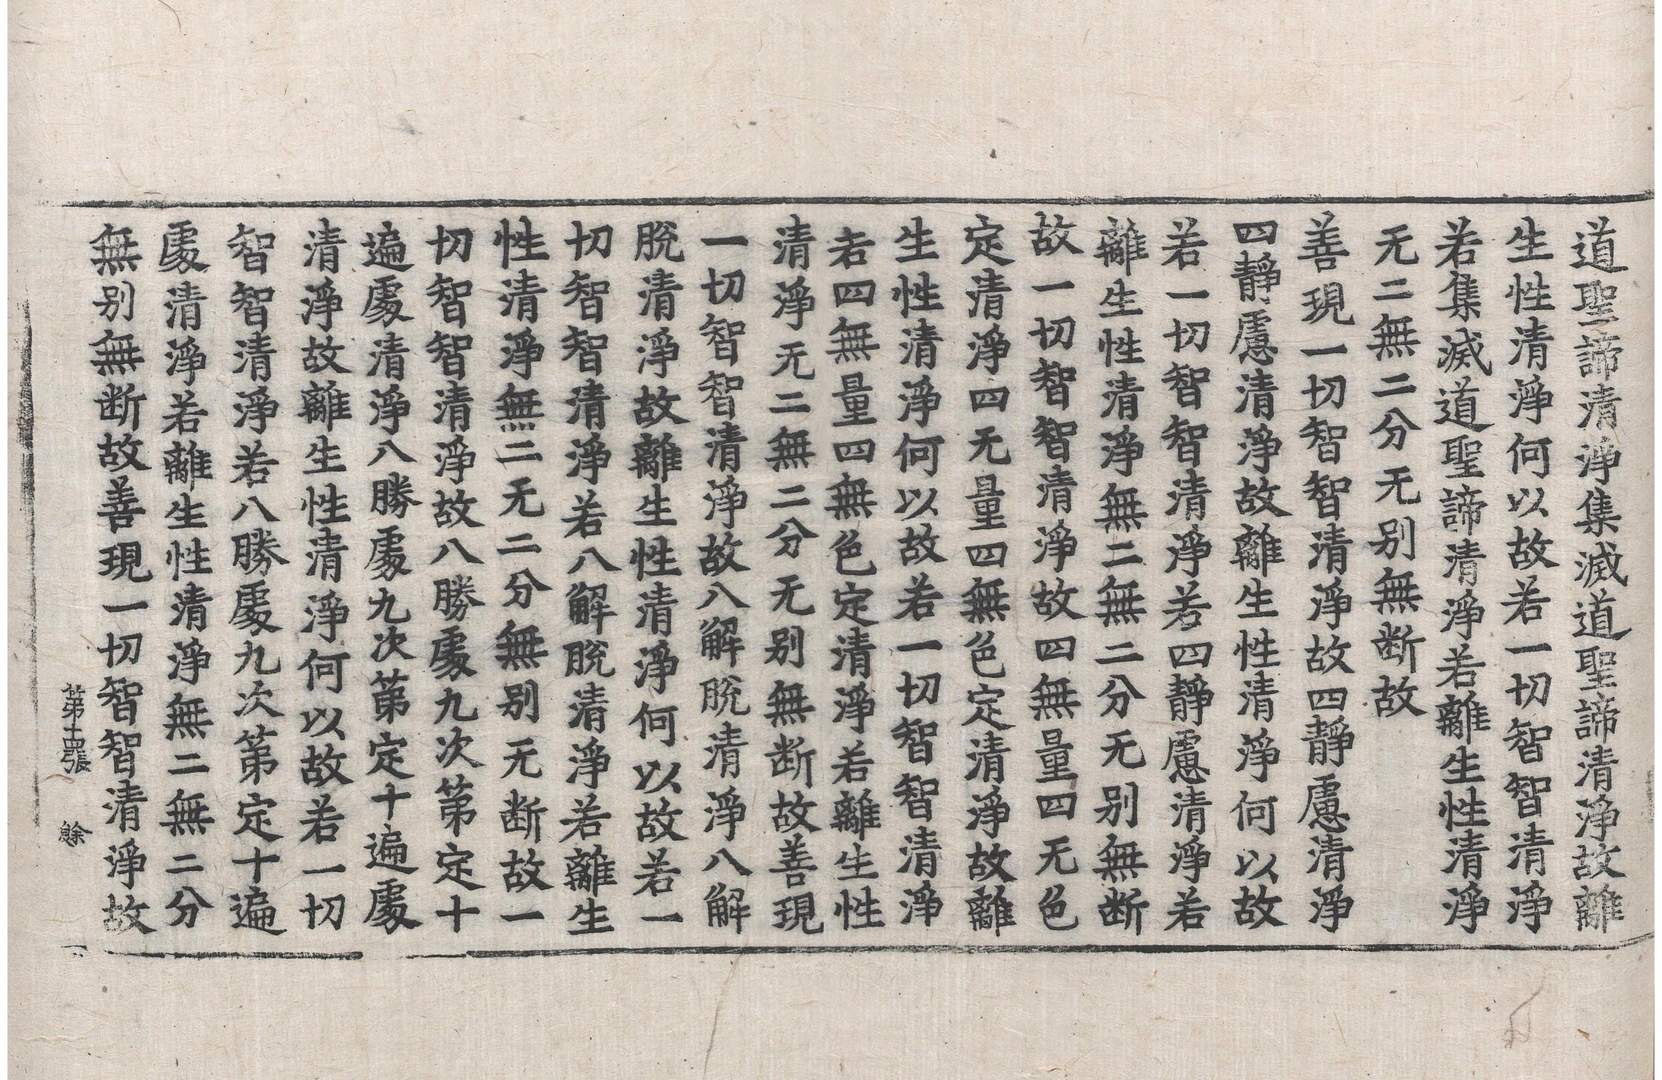 道聖諦清淨集滅道聖諦清淨故離
生性清淨何以故若一切智智清淨
若集滅道聖諦清淨若離生性清淨
无二無二分无別無断故
善現一切智智清淨故四靜慮清淨
四靜慮清淨故離生性清淨何以故
若一切智智清淨若四靜慮清淨若
離生性清淨無二無二分无別無断
故一切智智清淨故四無量四无色
定清淨四无量四無色定清淨故離
生性清淨何以故若一切智智清淨
若四無量四無色定清淨若離生性
清淨无二無二分无別無断故善現
一切智智清淨故八解脫清淨八解
脫清淨故離生性清淨何以故若一
切智智清淨若八解脫清淨若離生
性清淨無二无二分無別无断故一
切智智清淨故八勝處九次第定十
遍處清淨八勝處九次第定十遍處
清淨故離生性清淨何以故若一切
智智清淨若八勝處九次第定十遍
處清淨若離生性清淨無二無二分
無別無断故善現一切智智清淨故
第十四張 餘